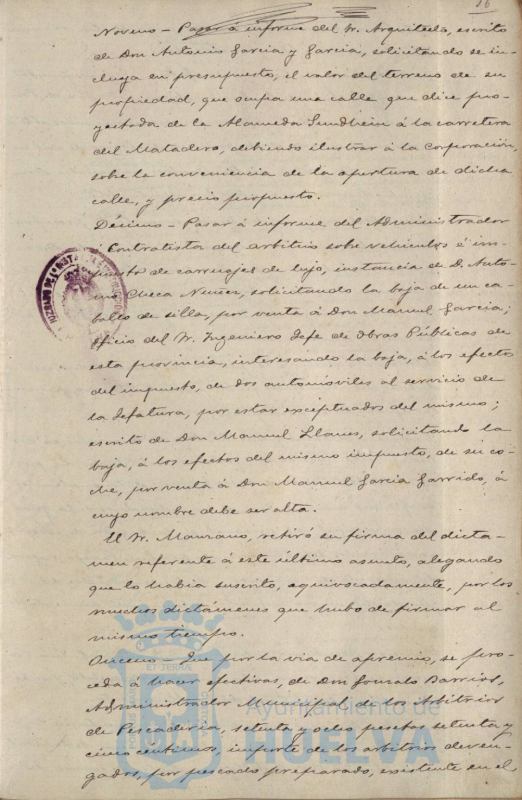 16
Noveno - Pasar á informe del Sr. Arquitecto, escrito
de Don Antonio Garcia y Garcia, solicitando se in-
cluya en presupuesto, el valor del terreno de su
propiedad, que ocupa una calle que dice pro-
yectada de la Alameda Sundheim á la carretera
del Matadero, debiendo ilustrar á la Corporación,
sobre la conveniencia de la apertura de dicha
calle, y precio propuesto.
Décimo - Pasar á informe del Administrador
Contratista del arbitrio sobre vehiculos é im-
puesto de carruajes de lujo, instancia de D. Anto-
nio Checa Nuñez, solicitando la baja de un ca-
ballo de silla, por venta á Don Manuel Garcia;
Oficio del Sr. Ingeniero Jefe de Obras Públicas de
esta provincia, interesando la baja, á los efectos
del impuesto, de dos automóviles al servicio de
la Jefatura, por estar exceptuados del mismo;
escrito de Don Manuel Llanes, solicitando la
baja, á los efectos del mismo impuesto, de su co-
che, por venta á Don Manuel Garcia Garrido, á
cuyo nombre debe ser alta.
El Sr. Manzano, retiró su firma del dicta-
men referente á este último asunto, alegando
que lo habia suscrito, equivocadamente, por los
muchos dictámenes que hubo de firmar al
mismo tiempo.
Onceno - Que por la via de apremio, se pro-
ceda á hacer efectivas, de Don Gonzalo Barrios,
Administrador Municipal de los Arbitrios
de Pescaderia, setenta y ocho pesetas setenta y
cinco céntimos, importe de los arbitrios deven-
gados, por pescado preparado, existente en el
Ayuntamiento de
HUELVA